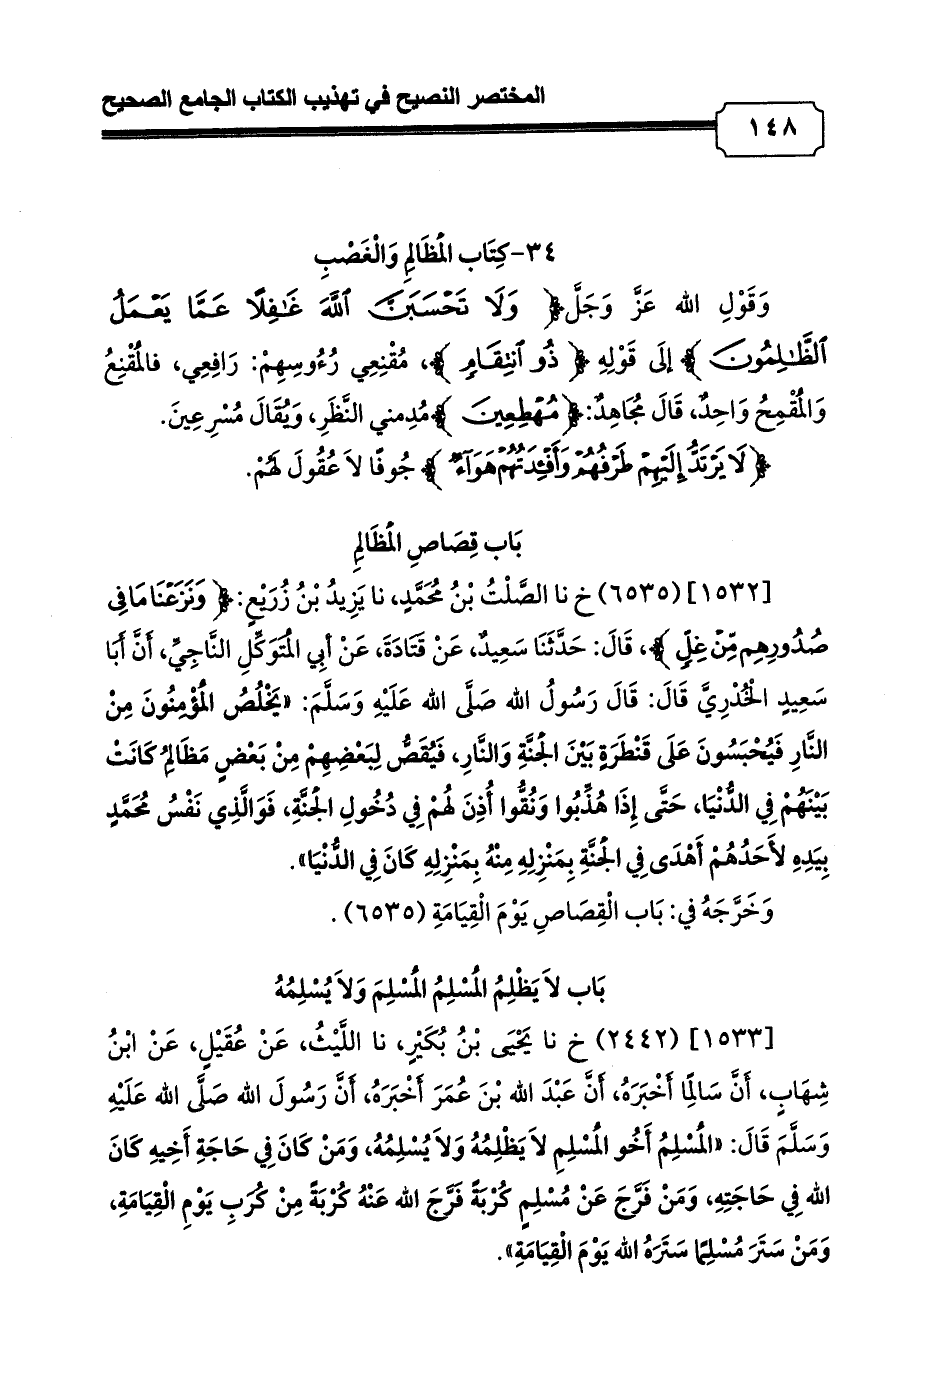 المختصر النصيح في تهذيب الكتاب الجامع الصحيح
١٤٨
٣٤-كِتَاب المَظَالِمِ وَالْغَصْبِ
وَقَوْلِ الله عَزَّ وَجَلَّ﴿ وَلَا تَحْسَبَنَّ ٱللَّهَ غَٰفِلًا عَمَّا يَعْمَلُ
ٱلظَّٰلِمُونَ ﴾ إلَى قَوْلِهِ ﴿ ذُو ٱنتِقَامٍ ﴾، مُقْنِعِي رُءُوسِهِمْ: رَافِعِي، فالمُقْنِعُ
وَالمُقْمِحُ وَاحِدٌ، قَالَ مُجَاهِدٌ:﴿ مُهْطِعِينَ ﴾مُدِمني النَّظَرِ، وَيُقَالَ مُسْرِعِينَ.
﴿ لَا يَرْتَدُّ إِلَيْهِمْ طَرْفُهُمْ وَأَفْـِٔدَتُهُمْ هَوَآءٌ ﴾ جُوفًا لاَ عُقُولَ لَهُمْ.
بَاب قِصَاصِ المَظَالِمِ
[١٥٣٢] (٦٥٣٥) خ نا الصَّلْتُ بْنُ مُحَمَّدٍ، نا يَزِيدُ بْنُ زُرَيْعٍ:﴿ وَنَزَعْنَا مَا فِى
صُدُورِهِم مِّنْ غِلٍّ ﴾، قَالَ: حَدَّثَنَا سَعِيدٌ، عَنْ قَتَادَةَ، عَنْ أبِي المُتَوَكِّلِ النَّاجِيِّ، أَنَّ أَبَا
سَعِيدٍ الْخُدْرِيَّ قَالَ: قَالَ رَسُولُ الله صَلَّى الله عَلَيْهِ وَسَلَّمَ: «يَخْلُصُ المُؤْمِنُونَ مِنْ
النَّارِ فَيُحْبَسُونَ عَلَى قَنْطَرَةٍ بَيْنَ الجَنَّةِ وَالنَّارِ، فَيُقَصُّ لِبَعْضِهِمْ مِنْ بَعْضٍ مَظَالِمُ كَانَتْ
بَيْنَهُمْ فِي الدُّنْيَا، حَتَّى إِذَا هُذِّبُوا وَنُقُّوا أُذِنَ لَهُمْ فِي دُخُولِ الجَنَّةِ، فَوَالَّذِي نَفْسُ مُحَمَّدٍ
بِيَدِهِ لأَحَدُهُمْ أَهْدَى فِي الجَنَّةِ بِمَنْزِلِهِ مِنْهُ بِمَنْزِلِهِ كَانَ فِي الدُّنْيَا».
وَخَرَّجَهُ في: بَاب الْقِصَاصِ يَوْمَ الْقِيَامَةِ (٦٥٣٥) .
بَاب لاَ يَظْلِمُ المُسْلِمُ المُسْلِمَ وَلاَ يُسْلِمُهُ
[١٥٣٣] (٢٤٤٢) خ نا يَحْيَى بْنُ بُكَيْرٍ، نا اللَّيْثُ، عَنْ عُقَيْلٍ، عَنْ ابْنُ
شِهَابٍ، أَنَّ سَالِمًا أَخْبَرَهُ، أَنَّ عَبْدَ الله بْنَ عُمَرَ أَخْبَرَهُ، أَنَّ رَسُولَ الله صَلَّى الله عَلَيْهِ
وَسَلَّمَ قَالَ: «المُسْلِمُ أَخُو المُسْلِمِ لاَ يَظْلِمُهُ وَلاَ يُسْلِمُهُ، وَمَنْ كَانَ فِي حَاجَةِ أَخِيهِ كَانَ
الله فِي حَاجَتِهِ، وَمَنْ فَرَّجَ عَنْ مُسْلِمٍ كُرْبَةً فَرَّجَ الله عَنْهُ كُرْبَةً مِنْ كُرَبِ يَوْمِ الْقِيَامَةِ،
وَمَنْ سَتَرَ مُسْلِمًا سَتَرَهُ الله يَوْمَ الْقِيَامَةِ».